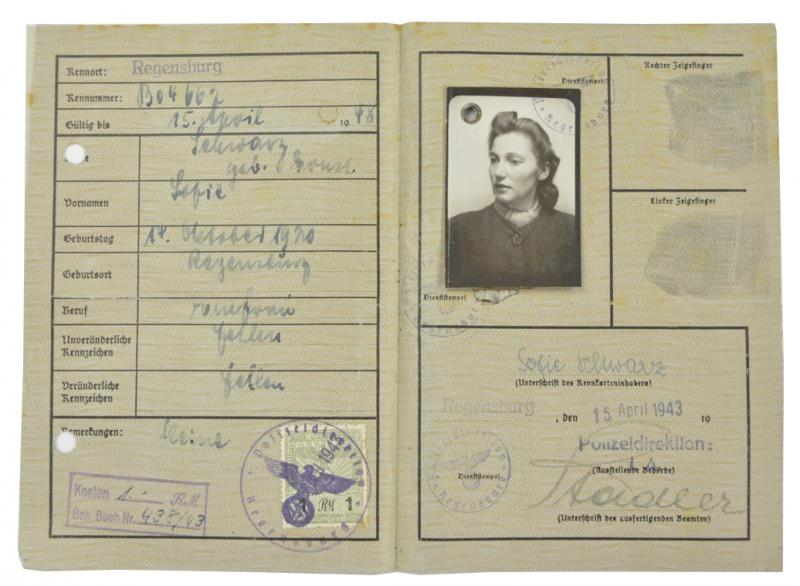 Kennort: Regensburg
Kennummer: B04667
Gültig bis 15. April 1948
Schwarz
geb. Ernst
Vornamen Sofie
Geburtstag 14. Oktober 1920
Geburtsort Regensburg
Beruf Ehefrau
Unveränderliche Kennzeichen fehlen
Veränderliche Kennzeichen fehlen
Bemerkungen: Keine
Kosten 1.— RM
Geb. Buch Nr. 438/43
Polizeidirektion Regensburg
1 RM 1
Dienststempel
Rechter Zeigefinger
Linker Zeigefinger
Dienststempel
Sofie Schwarz
(Unterschrift des Kennkarteninhabers)
Regensburg, den 15 April 1943 19
Polizeidirektion:
(Ausstellende Behörde)
Dienststempel
Stadler
(Unterschrift des ausfertigenden Beamten)